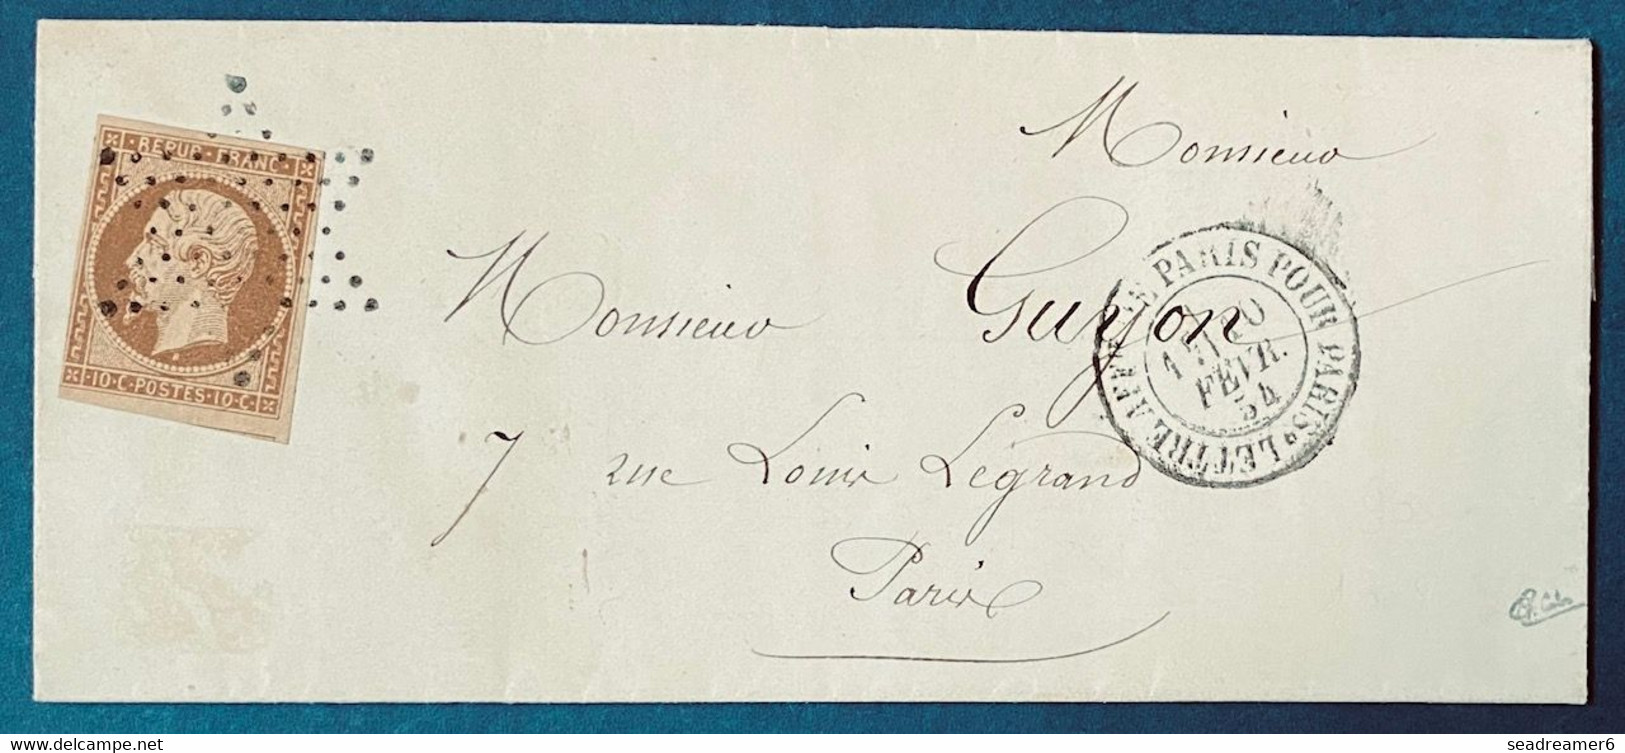 REPUB·FRANC·
10·C·POSTES·10·C·
Monsieur
Monsieur Guyon
7 rue Louis Legrand
Paris
LETTRE AFFR. DE PARIS POUR PARIS
10
FEVR.
54
www.delcampe.net
seadreamer6